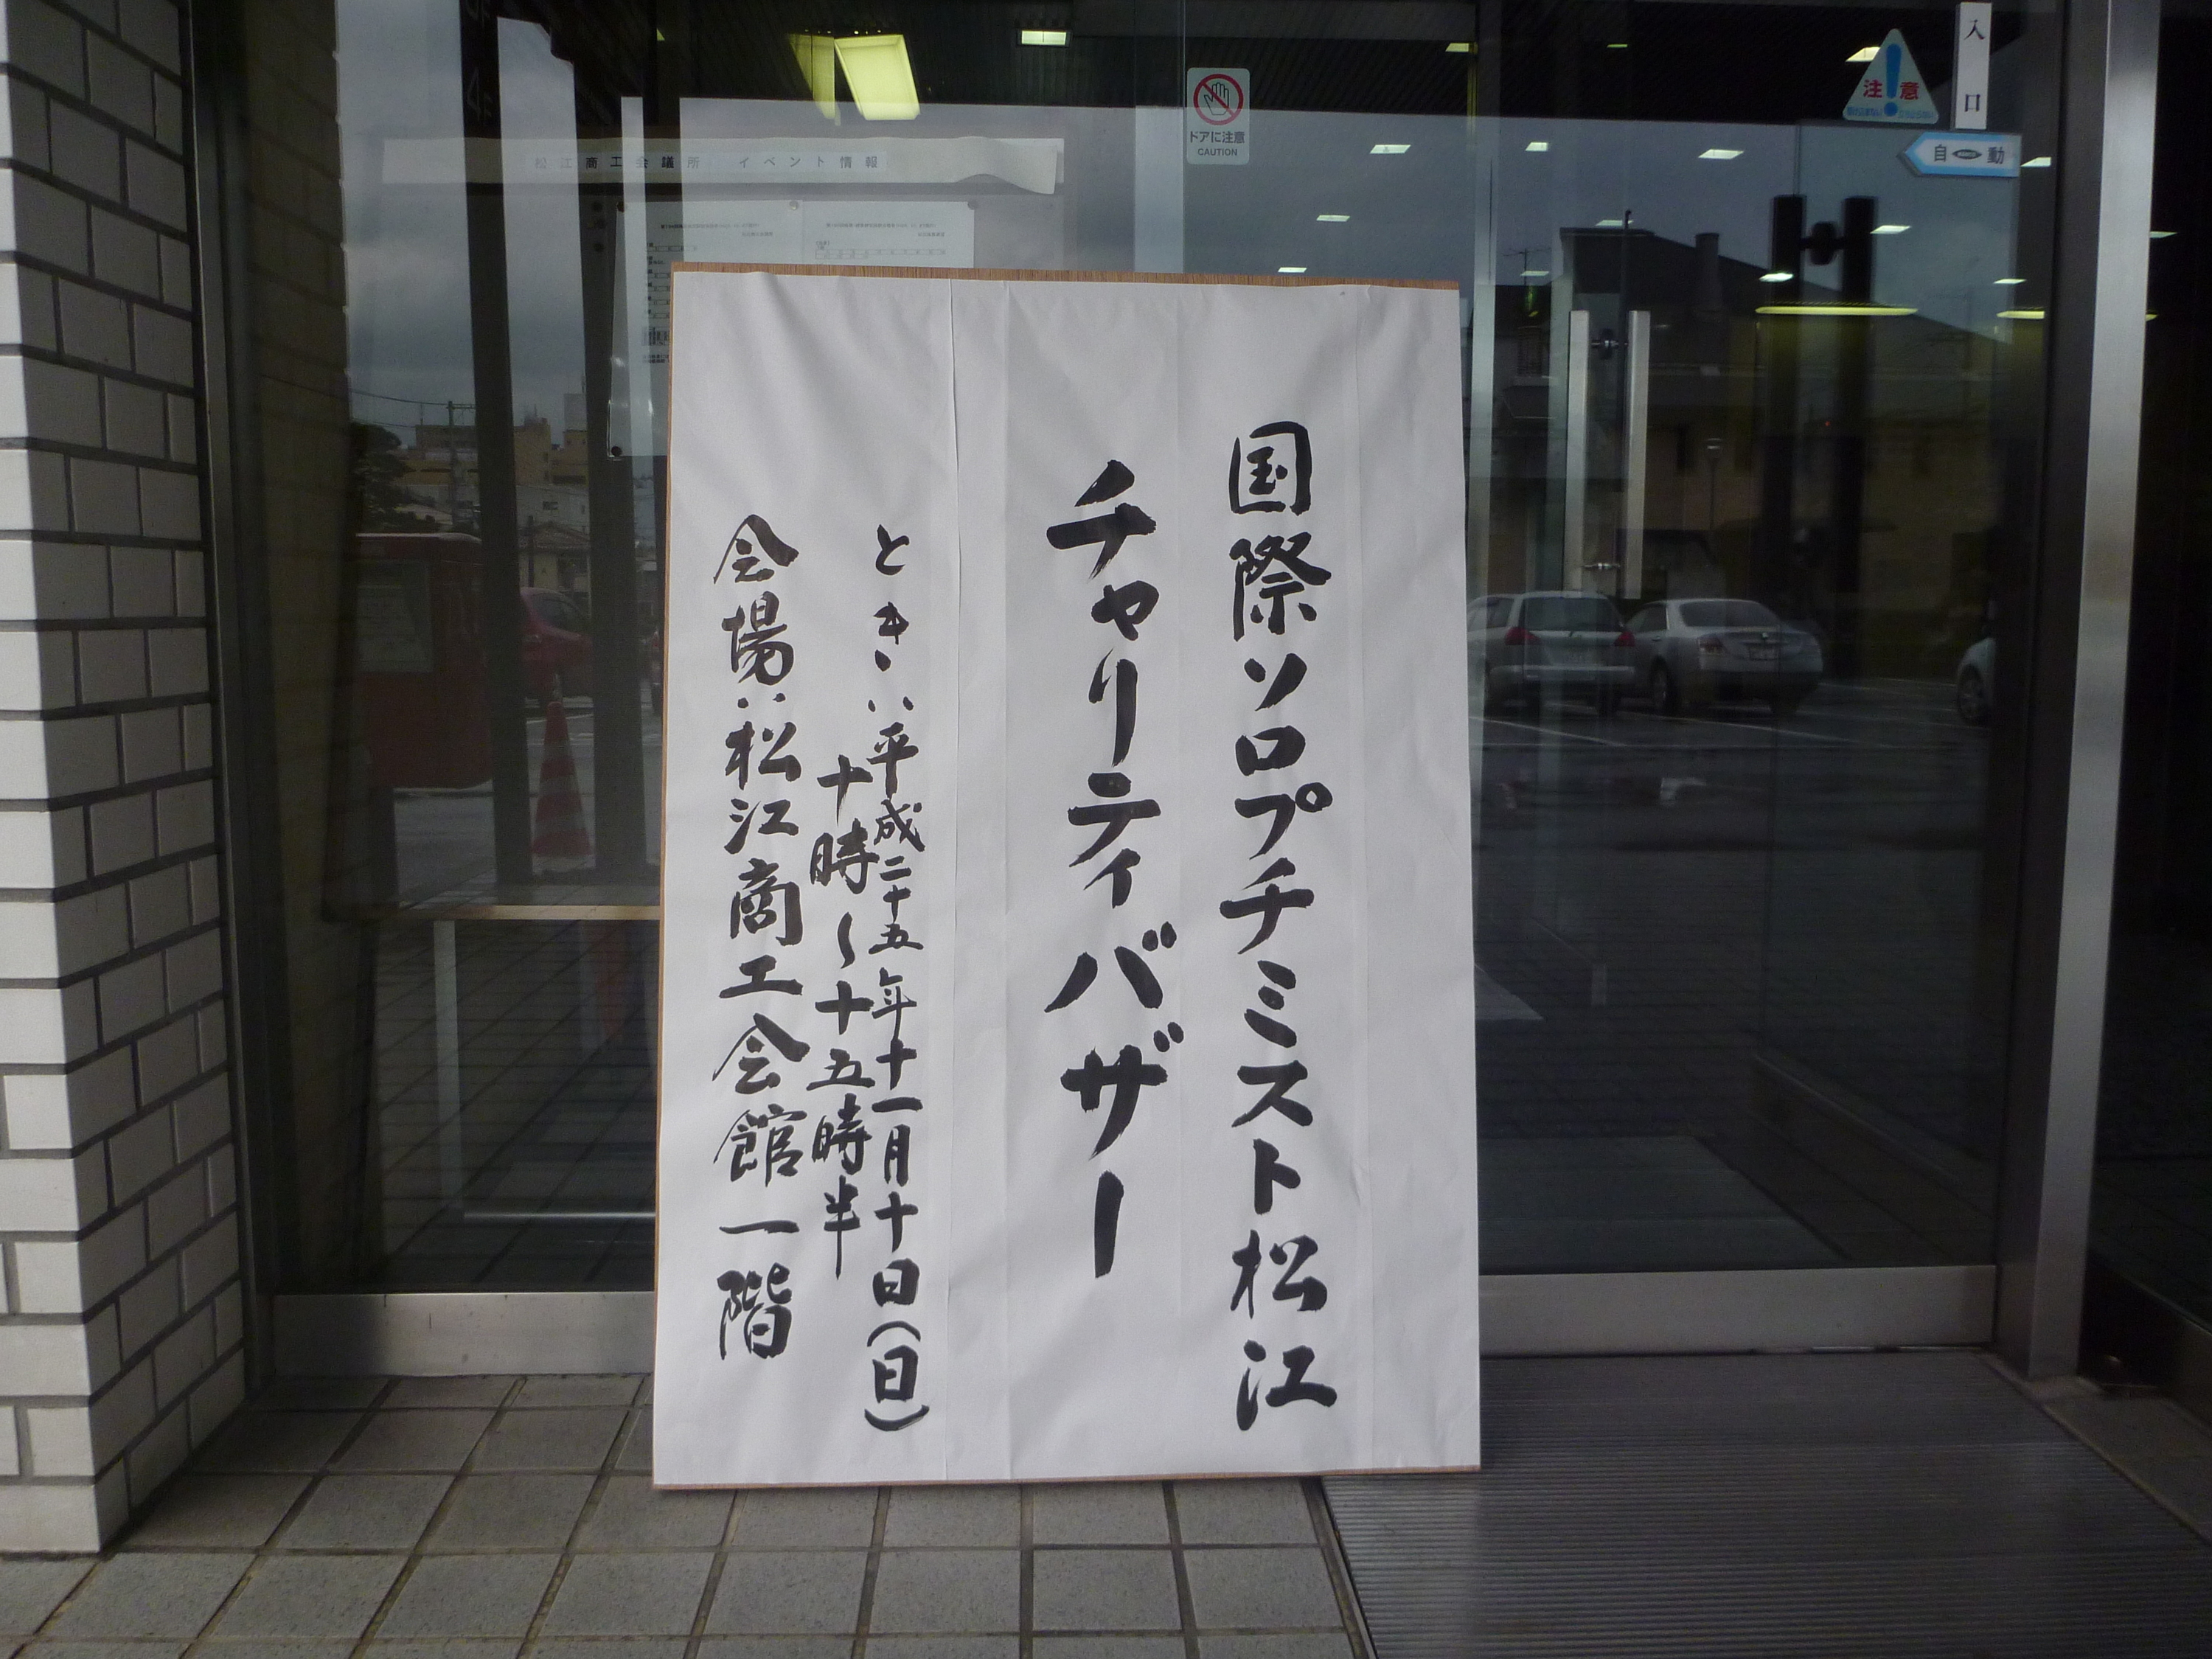 国際ソロプチミスト松江
チャリティバザー
とき:平成二十五年十一月十日(日)
十時~十五時半
会場:松江商工会館一階
松江商工会議所 イベント情報
ドアに注意
CAUTION
入口
注意
自動
4F